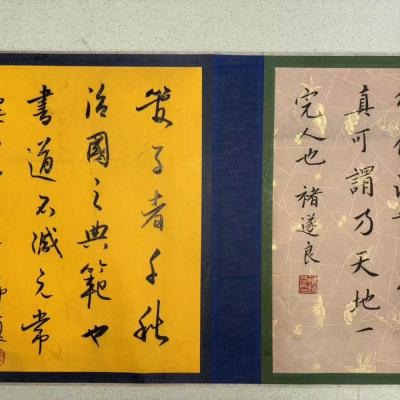 真可謂乃天地一
完人也 褚遂良
管子者千秋
治國之典範也
書道不減元常